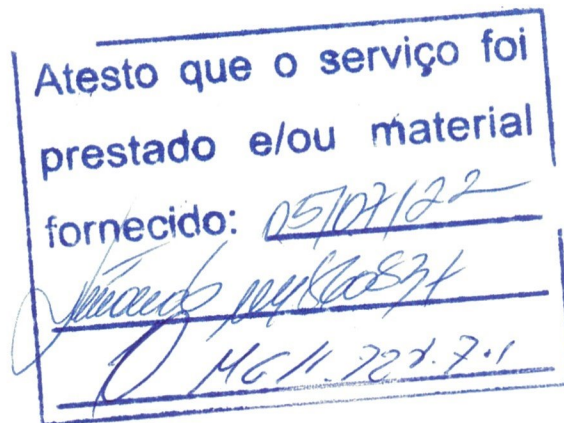 Atesto que o serviço foi
prestado e/ou material
fornecido: 05/07/22
MG11.727.7